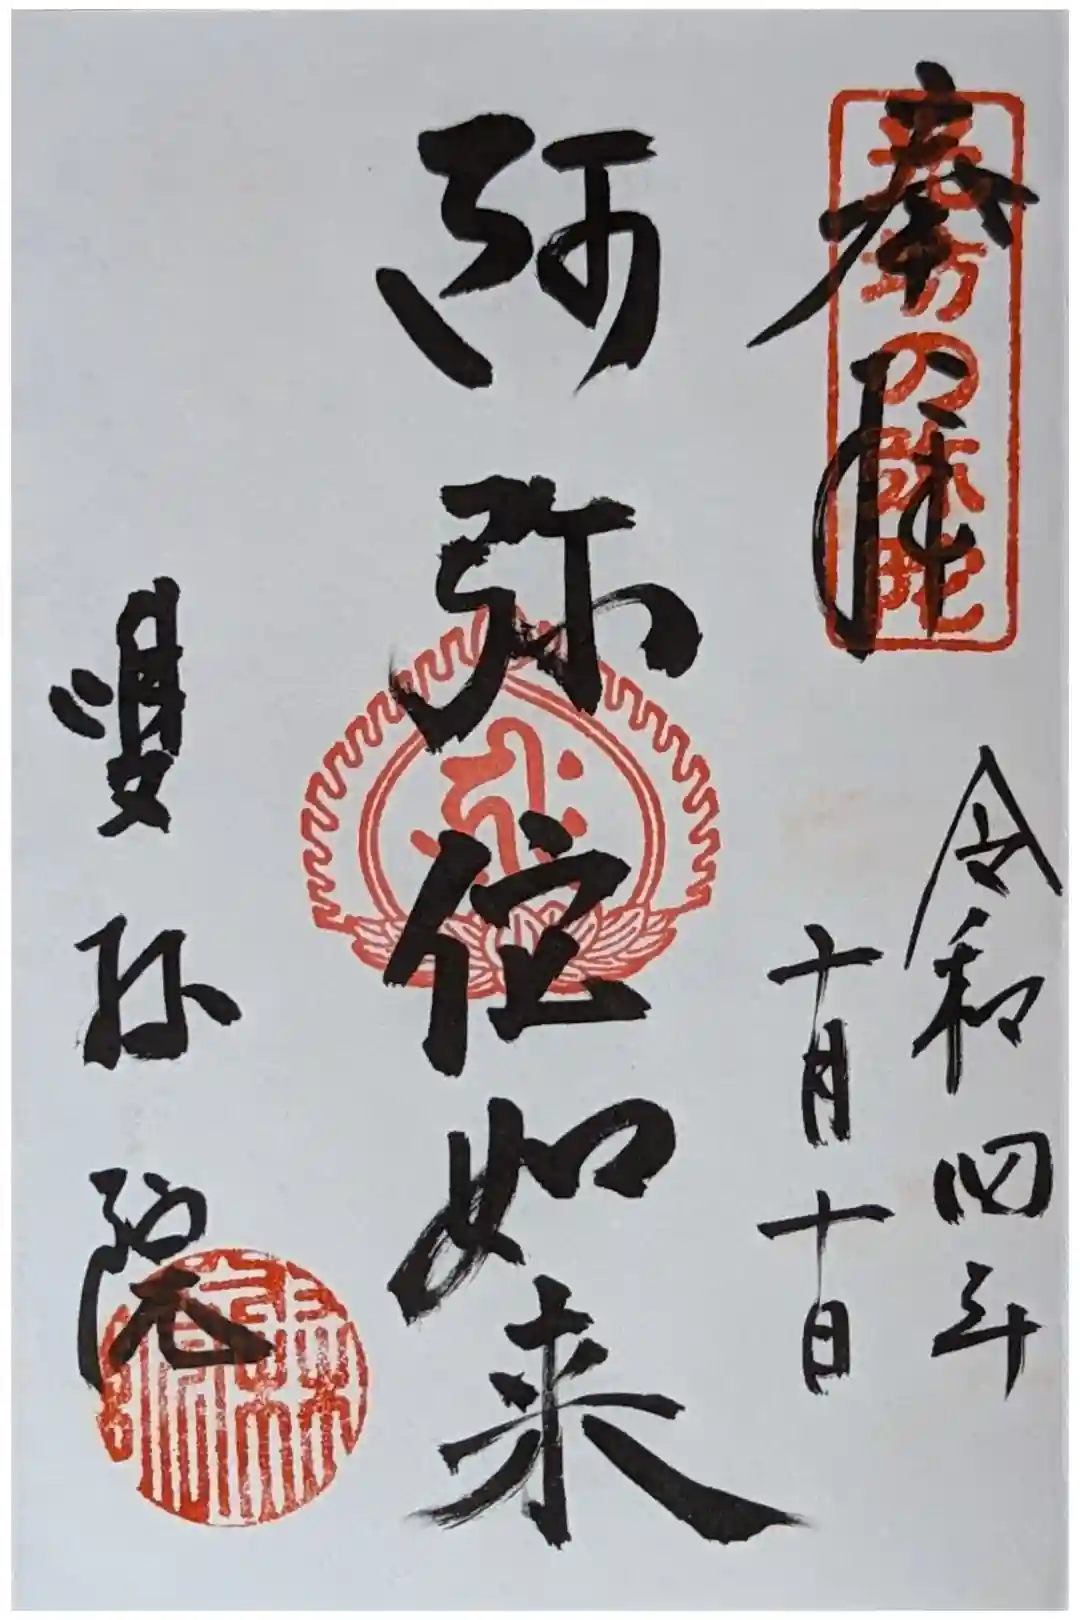 奉拝
坊の弥陀
令和四年
十月十日
阿弥陀如来
院